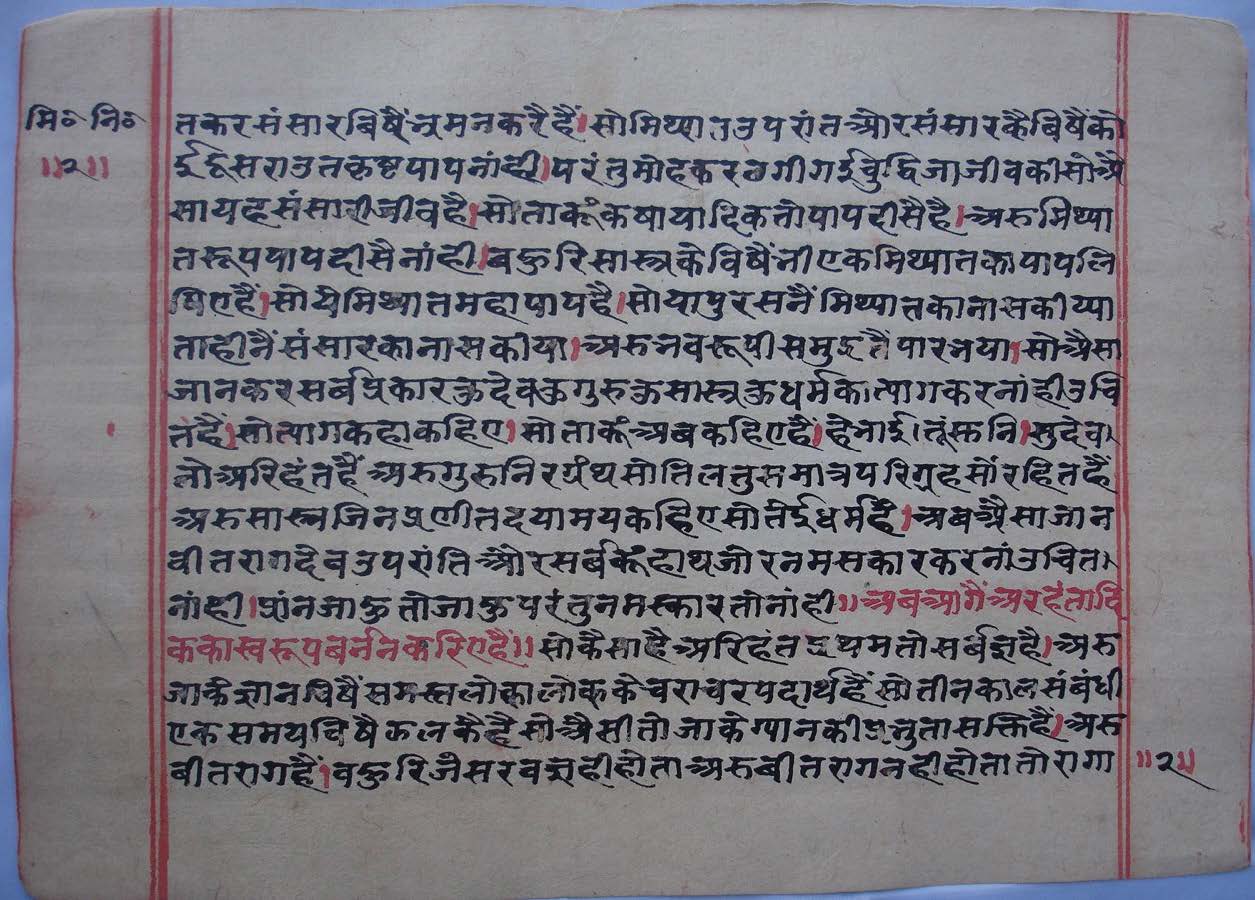 मि० नि०
॥२॥
तकर संसार बिषैं भ्रमन करै हैं। सो मिथ्यात उपरांत और संसार कै बिषैं को
ई दूसरा उतकृष्ट पाप नांही। परंतु मोहकर ठगी गई बुद्धि जा जीव की सो अै
सा यह संसारी जीव है। सो ताकूं कषायादिक तो पाप दीसै है। अरु मिथ्या
तरूप पाप दीसै नांही। बहुरि सास्त्र के विषैं भी एक मिथ्यात का पाप लि
षिए हैं। सो ये मिथ्यात महा पाप है। सो या पुरस नैं मिथ्यात का नास कीय्या
ता ही नैं संसार का नास कीया। अरु भवरूपी समुद्र तैं पार भया। सो अैसा
जानकर सर्ब प्रकार कुदेव कुगुरु कुसास्त्र कुधर्म का त्याग करनां ही उचि
त हैं। सो त्याग कहा कहिए। सो ताकूं अब कहिए हैं। हे भाई। तूं सुनि। सुदेव
तो अरिहंत हैं अरु गुरु निरग्रंथ सो तिल तुस मात्र परिग्रह सों रहित हैं
अरु सास्त्र जिन प्रणीत दयामय कहिए सो तेई धर्म हैं। अब अैसा जान
वीतराग देव उपरांति और सर्ब कूं हाथ जोर नमसकार करनां उचित
नांही। प्रांन जाहु तो जाहु परंतु नमस्कार तो नांही॥ अब आगैं अरहंतादि
क का स्वरूप बर्नन करिए हैं॥ सो कैसा है अरिहंत प्रथम तो सर्बज्ञ है। अरु
जाके ज्ञान विषैं समस्त लोकालोक के चराचर पदार्थ हैं सो तीन काल संबंधी
एक समय विषै झलकै है सो अैसी तो जाके ग्यान की प्रभुता सक्ति हैं। अरु
बीतराग हैं। बहुरि जै सरवज्ञ ही होता अरु बीतराग नही होता तो रागा
॥२॥